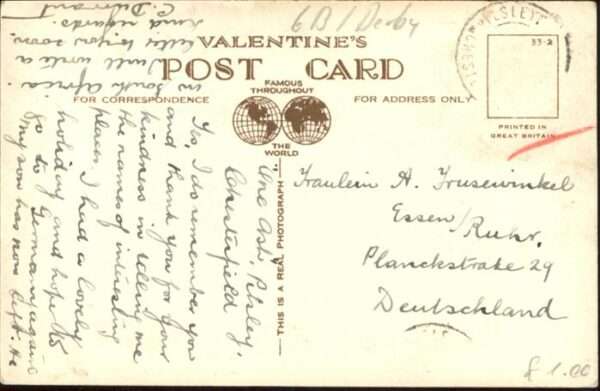 6B / Derby
VALENTINE'S
POST CARD
FAMOUS
THROUGHOUT
THE
WORLD
FOR CORRESPONDENCE
FOR ADDRESS ONLY
33-2
PRINTED IN
GREAT BRITAIN
THIS IS A REAL PHOTOGRAPH
One Ash, Pilsley,
Chesterfield
Yes, I do remember you
and thank you for your
kindness in telling me
the names of interesting
places. I had a lovely
holiday and hope to
go to Germany again
My son has now left. He
in South Africa.
I will write a
letter to you soon.
Kind regards.
Fräulein A. Frusewinkel
Essen/
Ruhr.
Planckstraße 29
Deutschland
1.00